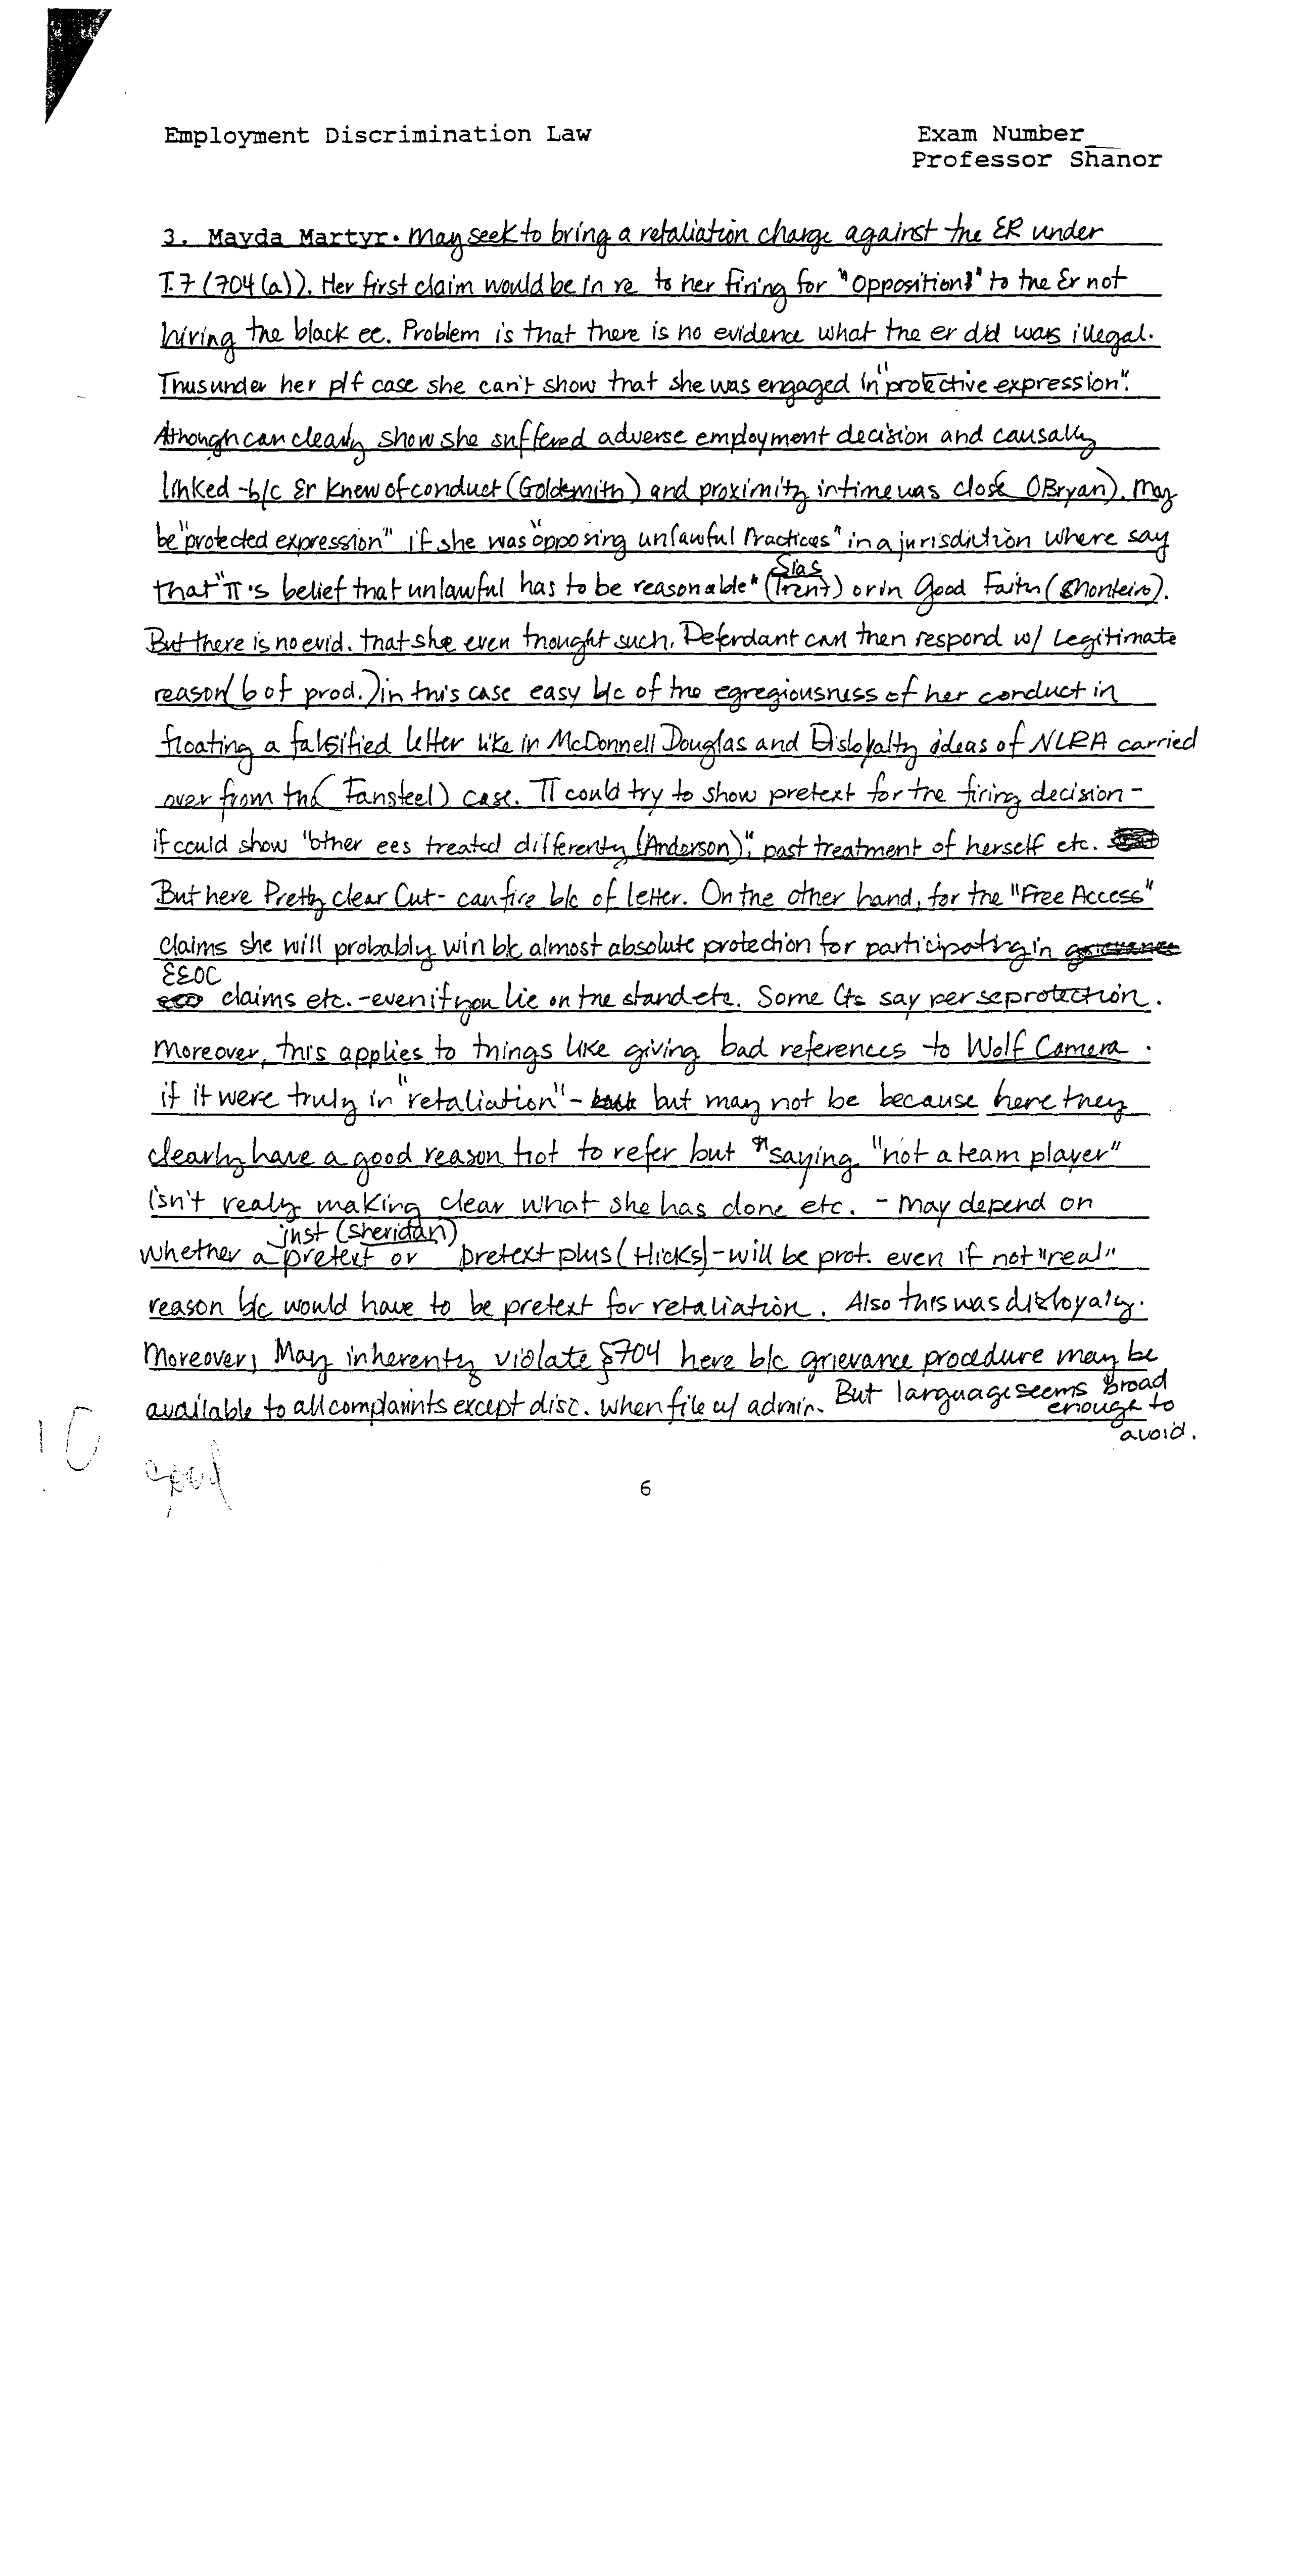 Employment Discrimination Law Exam Number_
Professor Shanor
3. Mayda Martyr. may seek to bring a retaliation charge against the ER under
T.7 (704(a)). Her first claim would be in re to her firing for "Opposition" to the Er not
hiring the black ee. Problem is that there is no evidence what the er did was illegal.
Thus under her p/f case she can't show that she was engaged in "protective expression".
Although can clearly show she suffered adverse employment decision and causally
linked - b/c Er knew of conduct (Goldsmith) and proximity in time was close OBryan). May
be "protected expression" if she was "opposing unlawful Practices" in a jurisdiction where say
Sias
that "π's belief that unlawful has to be reasonable" (Trent) or in Good Faith (Monteiro).
But there is no evid. that she even thought such. Defendant can then respond w/ Legitimate
reason (b of prod.) in this case easy b/c of the egregiousness of her conduct in
floating a falsified letter like in McDonnell Douglas and Disloyalty ideas of NLRA carried
over from the (Fansteel) case. π could try to show pretext for the firing decision -
if could show "other ees treated differently (Anderson)", past treatment of herself etc.
But here Pretty clear Cut - can fire b/c of letter. On the other hand, for the "Free Access"
claims she will probably win b/c almost absolute protection for participating in
EEOC
claims etc. - even if you lie on the stand etc. Some Cts say per se protection.
Moreover, this applies to things like giving bad references to Wolf Camera.
if it were truly in "retaliation" - but may not be because here they
clearly have a good reason not to refer but saying "not a team player"
isn't realy making clear what she has done etc. - may depend on
just (Sheridan)
whether a pretext or pretext plus (Hicks) - will be prot. even if not "real"
reason b/c would have to be pretext for retaliation. Also this was disloyalty.
Moreover, May inherently violate §704 here b/c grievance procedure may be
available to all complaints except disc. when file w/ admin. But language seems broad
enough to
avoid.
10
good
6